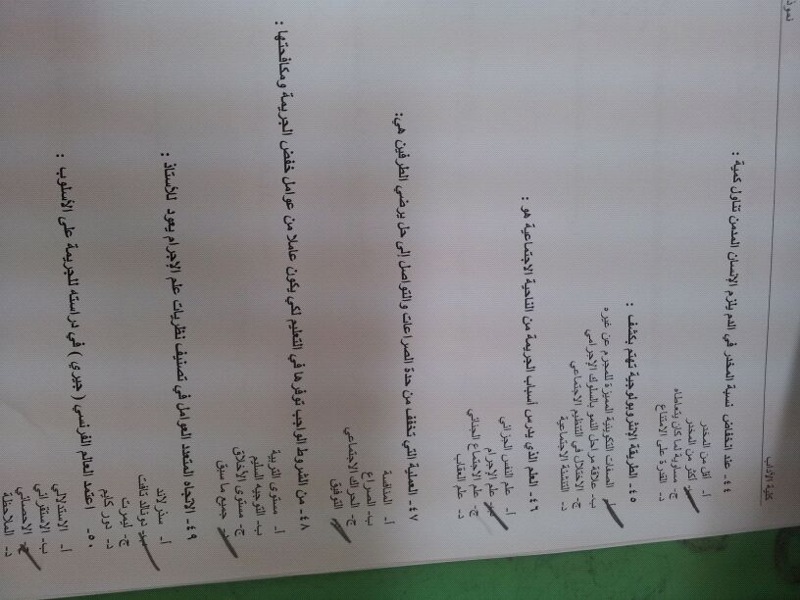 نموذ
كلية الآداب
٤٤- عند انخفاض نسبة المخدر في الدم يلزم الإنسان المدمن تناول كمية :
أ- أقل من المخدر
ب- أكثر من المخدر
ج- مساوية لما كان يتعاطاه
د- القدرة على الامتناع
٤٥- الطريقة الإنثروبولوجية تهتم بكشف :
أ- الصفات التكوينية المميزة للمجرم عن غيره
ب- علاقة مراحل النمو بالسلوك الإجرامي
ج- الاختلال في التنظيم الاجتماعي
د- التنشئة الاجتماعية
٤٦- العلم الذي يدرس أسباب الجريمة من الناحية الاجتماعية هو :
أ- علم النفس الجنائي
ب- علم الإجرام
ج- علم الاجتماع الجنائي
د- علم العقاب
٤٧- العملية التي تخفف من حدة الصراعات والتواصل إلى حل يرضي الطرفين هي:
أ- المنافسة
ب- الصراع
ج- الحراك الاجتماعي
د- التوفيق
٤٨- من الشروط الواجب توفرها في التعليم لكي يكون عاملا من عوامل خفض الجريمة ومكافحتها :
أ- مستوى التربية
ب- التوجيه السليم
ج- مستوى الأخلاق
د- جميع ما سبق
٤٩- الاتجاه المتعدد العوامل في تصنيف نظريات علم الإجرام يعود للأستاذ :
أ- سذرلاند
ب- دونالد تافت
ج- ليبرت
د- دور كايم
٥٠- اعتمد العالم الفرنسي ( جيري ) في دراسته للجريمة على الأسلوب :
أ- الاستدلالي
ب- الاستقرائي
ج- الإحصائي
د- الملاحظة